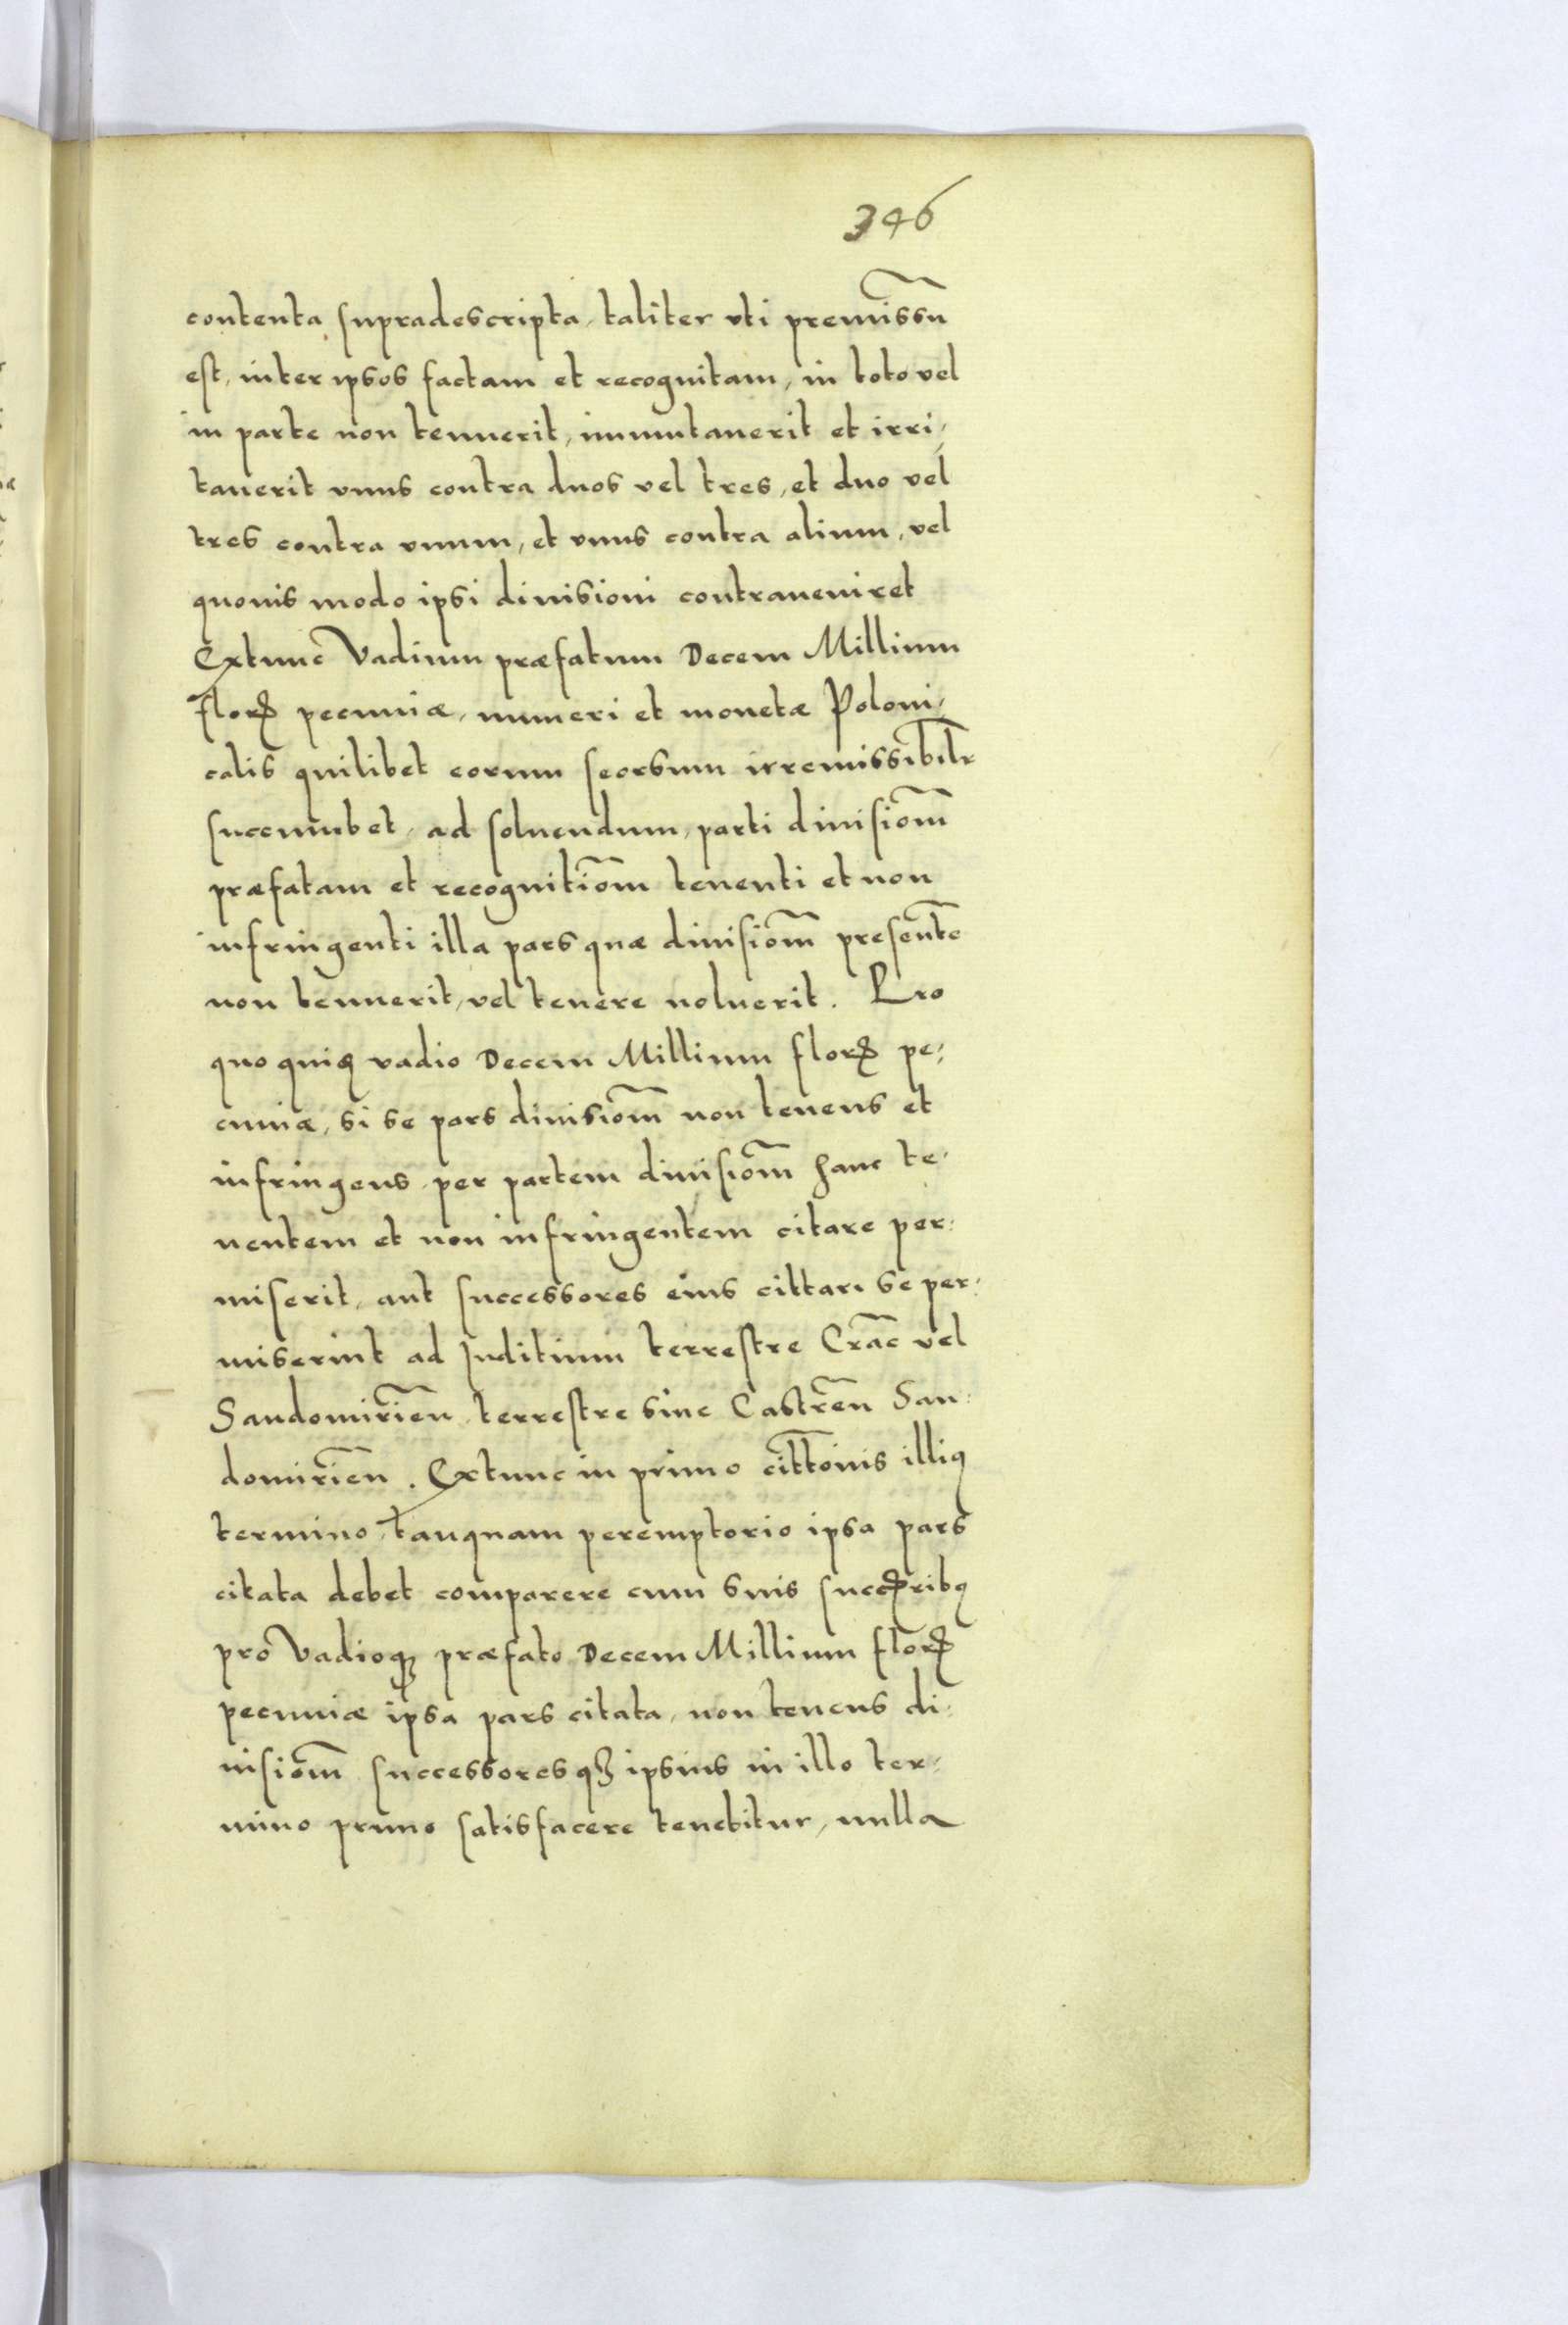 346
contenta supradescripta, taliter vti premissũ
est, inter ipsos factam et recognitam, in toto vel
in parte non tenuerit, immutauerit et irri,
tauerit vnus contra duos vel tres, et duo vel
tres contra vnum, et vnus contra alium, vel
quouis modo ipsi diuisioni contraueniret
Extunc Vadium præfatum Decem Millium
Florꝝ pecuniæ, numeri et monetæ Poloni,
calis quilibet eorum seorsum irremissibilr
succumbet, ad soluendum, parti diuisiom̃
præfatam et recognitiom̃ tenenti et non
infringenti illa pars quæ diuisiom̃ presente͂
non tenuerit, vel tenere noluerit. Pro
quo quiꝫ vadio Decem Millium florꝝ pe:
cuniæ, si se pars diuisiom̃ non tenens et
infringens per partem diuisiom̃ hanc te:
nentem et non infringentem citare per:
miserit, aut successores eius cittari se per:
miserint ad Juditium terrestre Crac̃ vel
Sandomirien̄ terrestre siue Castren̄ San:
domirien̄. Extunc in primo cittõnis illiꝰ
termino, tanquam peremptorio ipsa pars
citata debet comparere cum suis succꝝribꝰ
pro Vadioqꝫ præfato Decem Millium florꝝ
pecuniæ ipsa pars citata, non tenens di:
uisiom̃ successoresqꝫ ipsius in illo ter:
mino primo satisfacere tenebitur, nulla